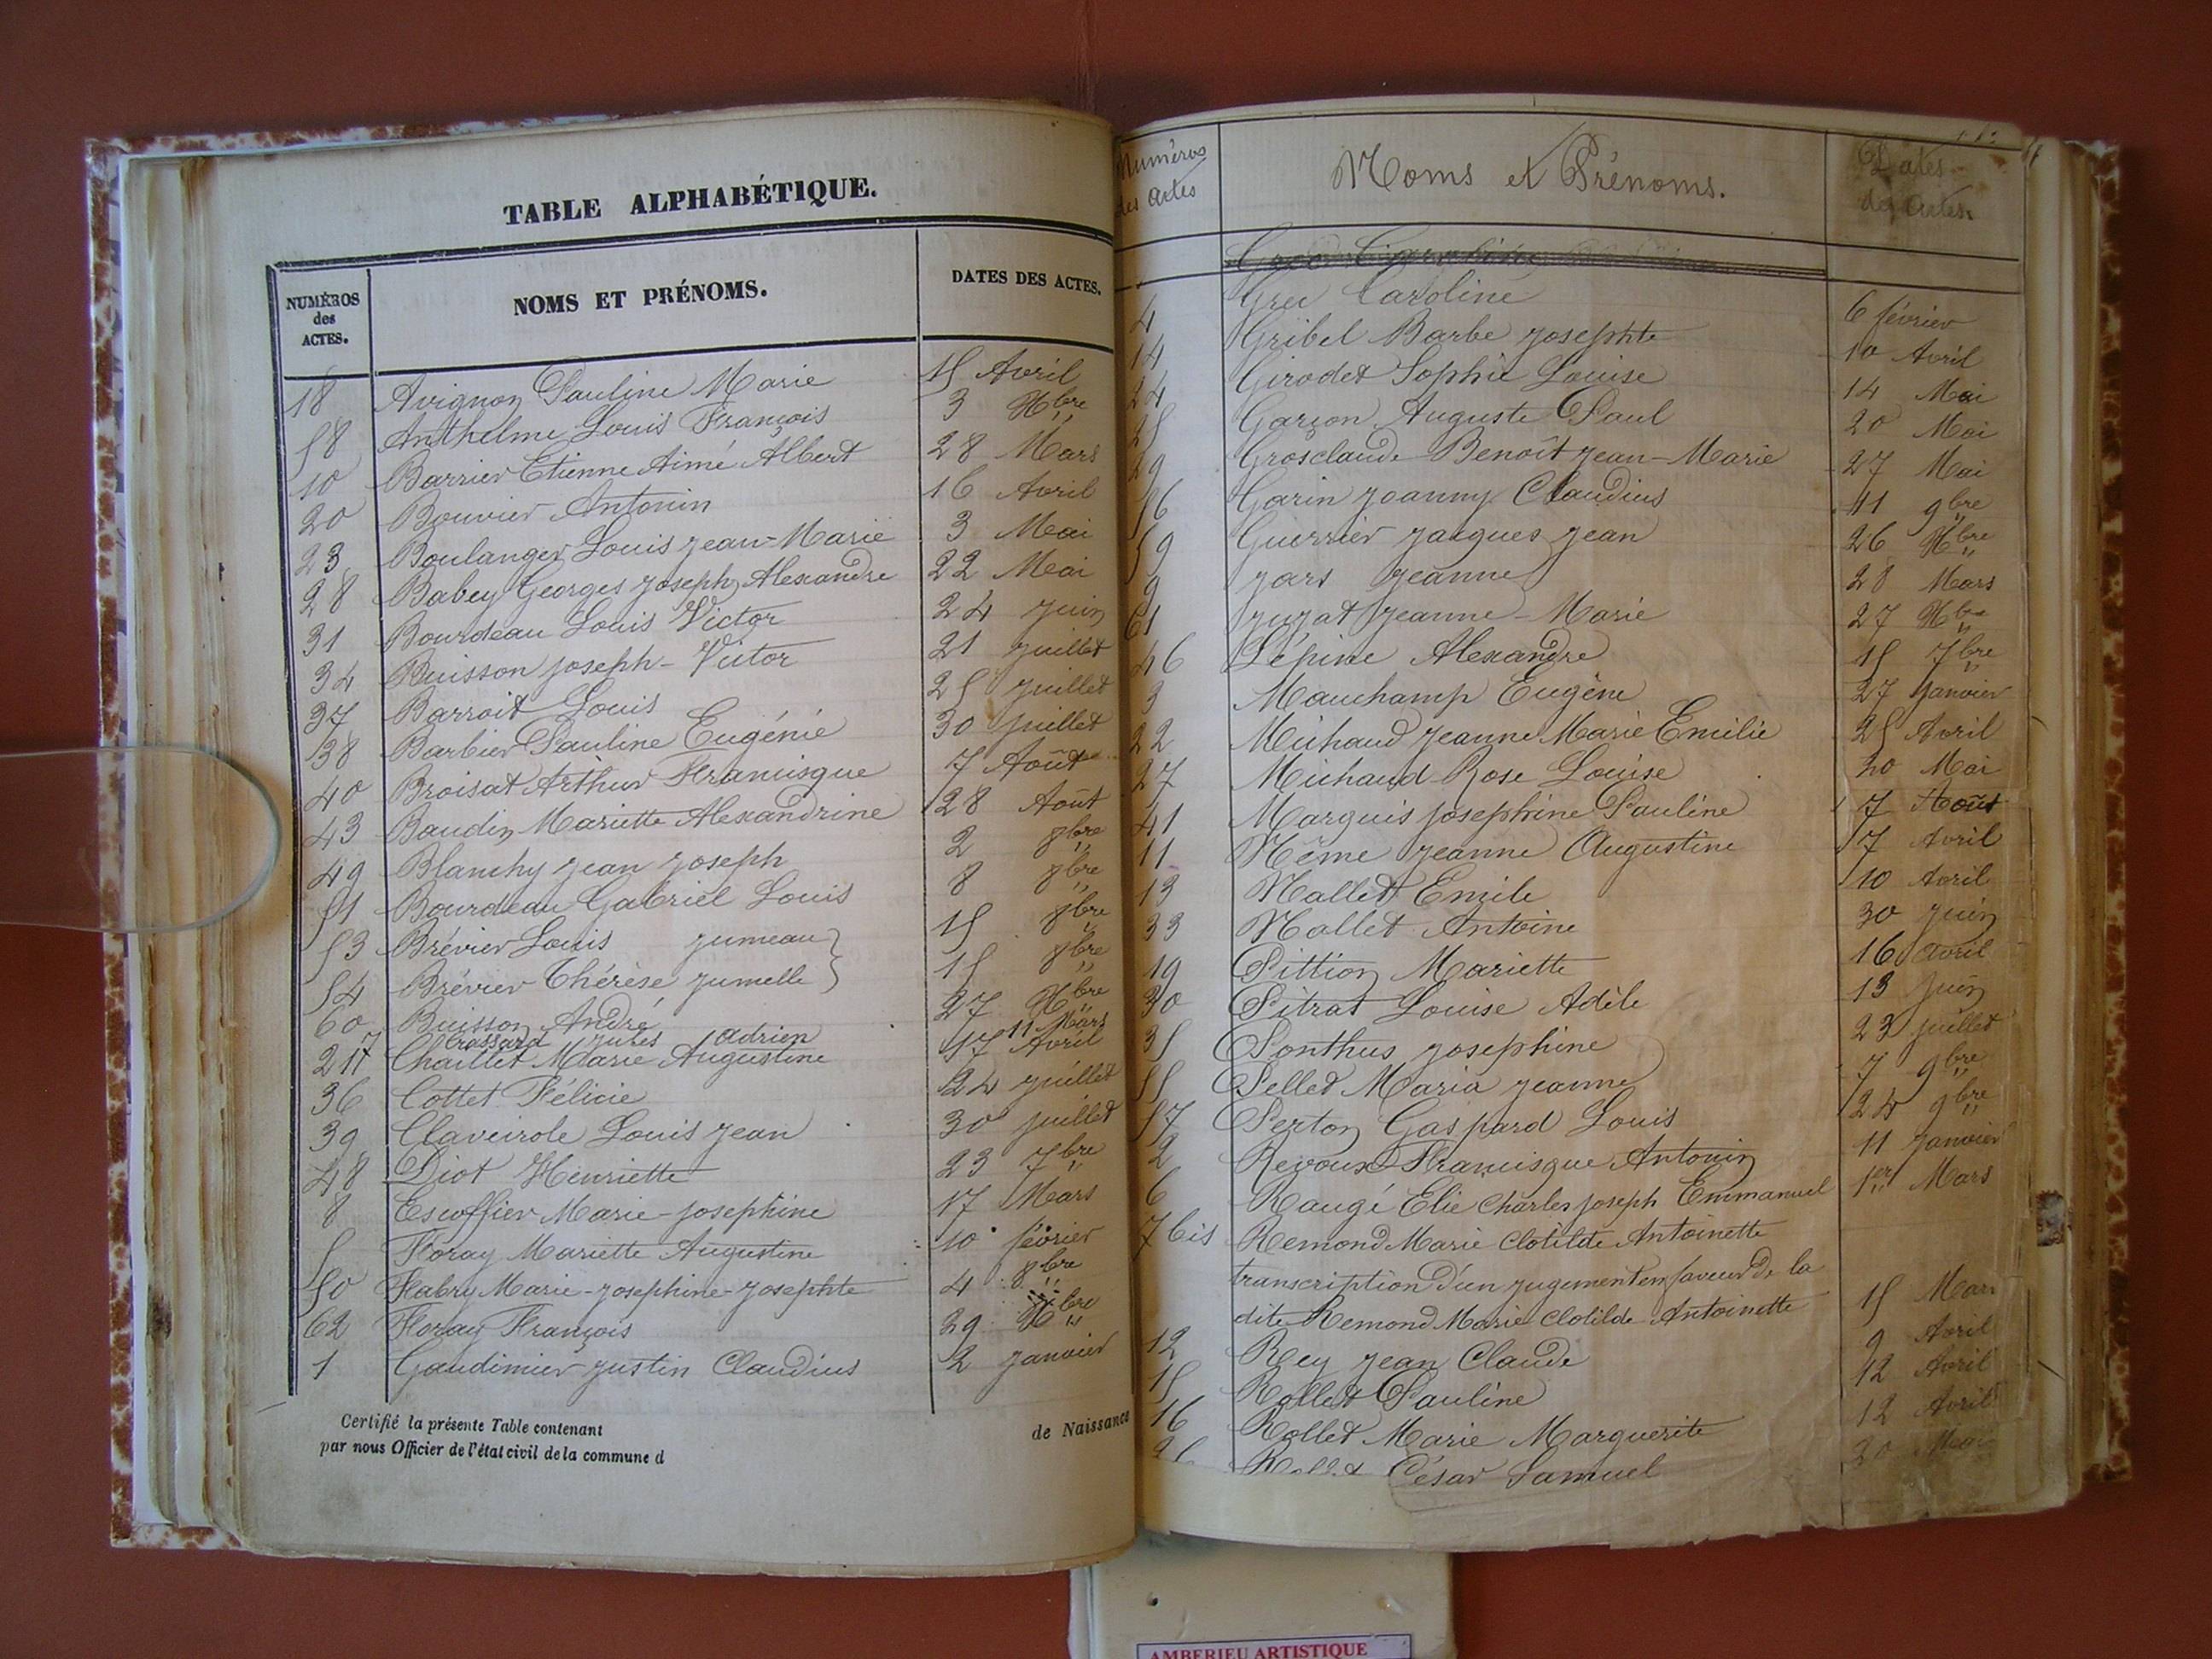 TABLE ALPHABÉTIQUE.
NUMÉROS des ACTES. NOMS ET PRÉNOMS. DATES DES ACTES.
18 Avignon Pauline Marie 15 Avril
58 Anthelme Louis François 3 Xbre
10 Barrier Etienne Aimé Albert 28 Mars
20 Bouvier Antonin 16 Avril
23 Boulanger Louis Jean-Marie 3 Mai
28 Babey Georges Joseph Alexandre 22 Mai
31 Bourdeau Louis Victor 24 Juin
34 Buisson Joseph-Victor 21 Juillet
37 Barroit Louis 25 Juillet
38 Barbier Pauline Eugénie 30 Juillet
40 Broisat Arthur Francisque 7 Août
43 Baudin Mariette Alexandrine 28 Août
49 Blanchy Jean Joseph 2 8bre
51 Bourdeau Gabriel Louis 8 8bre
53 Brévier Louis jumeau 15 8bre
54 Brévier Thérèse jumelle 15 8bre
60 Buisson André 27 Xbre
7 Crassard Jules Adrien 11 Mars
21 Chaillet Marie Augustine 17 Avril
36 Cottet Félicie 24 Juillet
39 Claveirole Louis Jean 30 Juillet
48 Diot Henriette 23 7bre
8 Escoffier Marie-Joséphine 17 Mars
5 Foray Mariette Augustine 10 février
50 Fabry Marie-Joséphine-Josephte 4 8bre
62 Foray François 29 Xbre
1 Gaudimier Justin Claudius 2 Janvier
Certifié la présente Table contenant de Naissance
par nous Officier de l'état civil de la commune d
Numéros des actes Noms et Prénoms. Dates des actes.
4 Grec Caroline 6 février
14 Gribel Barbe Josephte 10 Avril
24 Girodet Sophie Louise 14 Mai
25 Garçon Auguste Paul 20 Mai
29 Grosclaude Benoît Jean-Marie 27 Mai
56 Garin Joanny Claudius 11 9bre
59 Guerrier Jacques Jean 26 Xbre
9 Jars Jeanne 28 Mars
61 Juzat Jeanne-Marie 27 Xbre
46 Lépine Alexandre 15 7bre
3 Mauchamp Eugène 27 Janvier
22 Michaud Jeanne Marie Emilie 25 Avril
27 Michaud Rose Louise 20 Mai
41 Marquis Joséphine Pauline 7 Août
11 Nême Jeanne Augustine 7 Avril
13 Nallet Emile 10 Avril
33 Nallet Antoine 30 Juin
19 Pittion Mariette 16 Avril
30 Pitrat Louise Adèle 13 Juin
35 Ponthus Joséphine 23 Juillet
55 Pellet Maria Jeanne 7 9bre
57 Perton Gaspard Louis 24 9bre
2 Revoux Francisque Antonin 11 Janvier
6 Raugé Elie Charles Joseph Emmanuel 1er Mars
7 bis Remond Marie Clotilde Antoinette
transcription d'un jugement en faveur de la
dite Remond Marie Clotilde Antoinette 15 Mars
12 Rey Jean Claude 9 Avril
15 Rollet Pauline 12 Avril
16 Rollet Marie Marguerite 12 Avril
César Samuel 20 Mai
AMBERIEU ARTISTIQUE